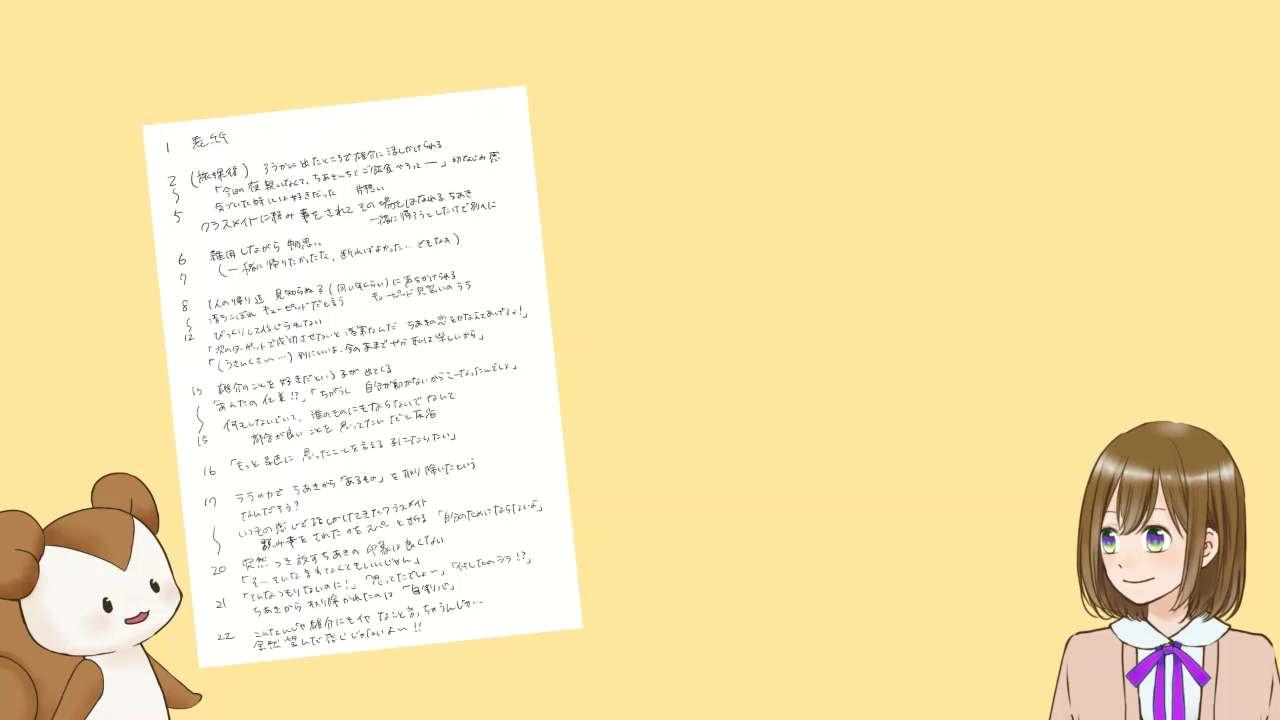 1 表紙
2 (放課後) ろうかに出たところで雄介に話しかけられる
「今日の夜親いなくて、ちあきんちでご飯食べろってー」幼なじみ
5 気づいた時には好きだった 片想い
クラスメイトに頼み事をされてその場をはなれるちあき
一緒に帰ろうとしたけど別々に
6 雑用しながら物思い
7 (一緒に帰りたかったな、断ればよかった…でもなぁ)
8 1人の帰り道 見知らぬ子(同い年くらい)に声をかけられる
落ちこぼれキューピッドだと言う キューピッド見習いのララ
12 びっくりして信じられない
「次のターゲットで成功させないと落第なんだ ちあきの恋をかなえてあげるよ!」
「(うさんくさ〜…)別にいいよ、今のままで
13 雄介のことを好きだという子が出てくる
「あんたの仕業!?」「ちがうし 自分が動かないからこーなったんでしょ」
何もしないでいて、誰のものにもならないでなんて
15 都合が良いことを思ってたんだと反省
16 「もっと素直に思ったことを言える子になりたい」
17 ララの力でちあきから「あるもの」を取り除いたという
なんだろう?
いつもの感じで話しかけてきたクラスメイト
頼み事をされたのをスパーと断る「自分のためにならないよ」
20 突然つき放すちあきの印象は良くない
「そ…そんな言わなくてもいいじゃん」
「そんなつもりないのに!」「思ってたでしょ〜」「何したのララ!?」
21 ちあきから取り除かれたのは「自制心」
22 こんなんじゃ雄介にもイヤなこと言っちゃうんじゃ…
全然望んだ感じじゃないよ〜!!